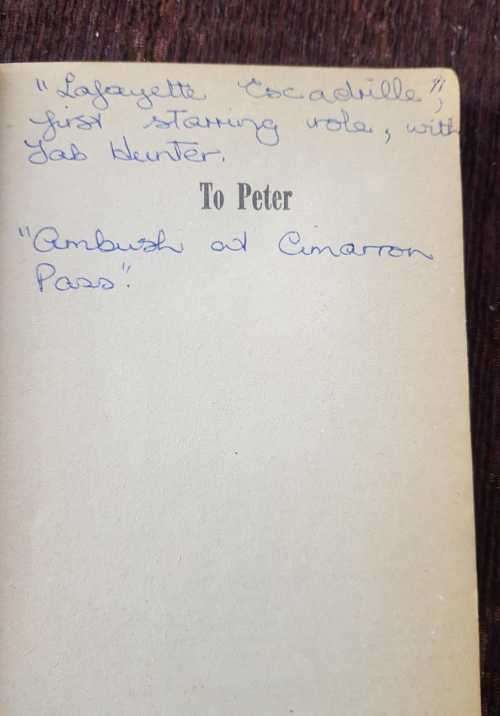 "Lafayette Escadrille",
first starring role, with
Tab Hunter.
To Peter
"Ambush at Cimarron
Pass".